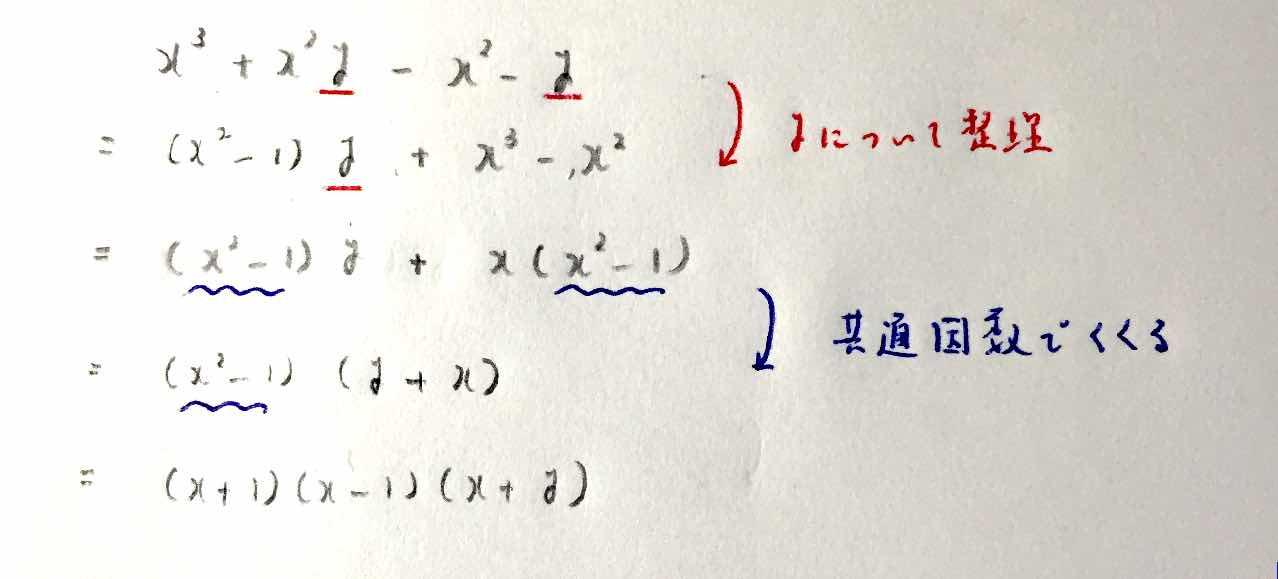 x³ + x²y - x² - y
= (x² - 1) y + x³ - x²
yについて整理
= (x² - 1) y + x (x² - 1)
= (x² - 1) (y + x)
共通因数でくくる
= (x + 1) (x - 1) (x + y)